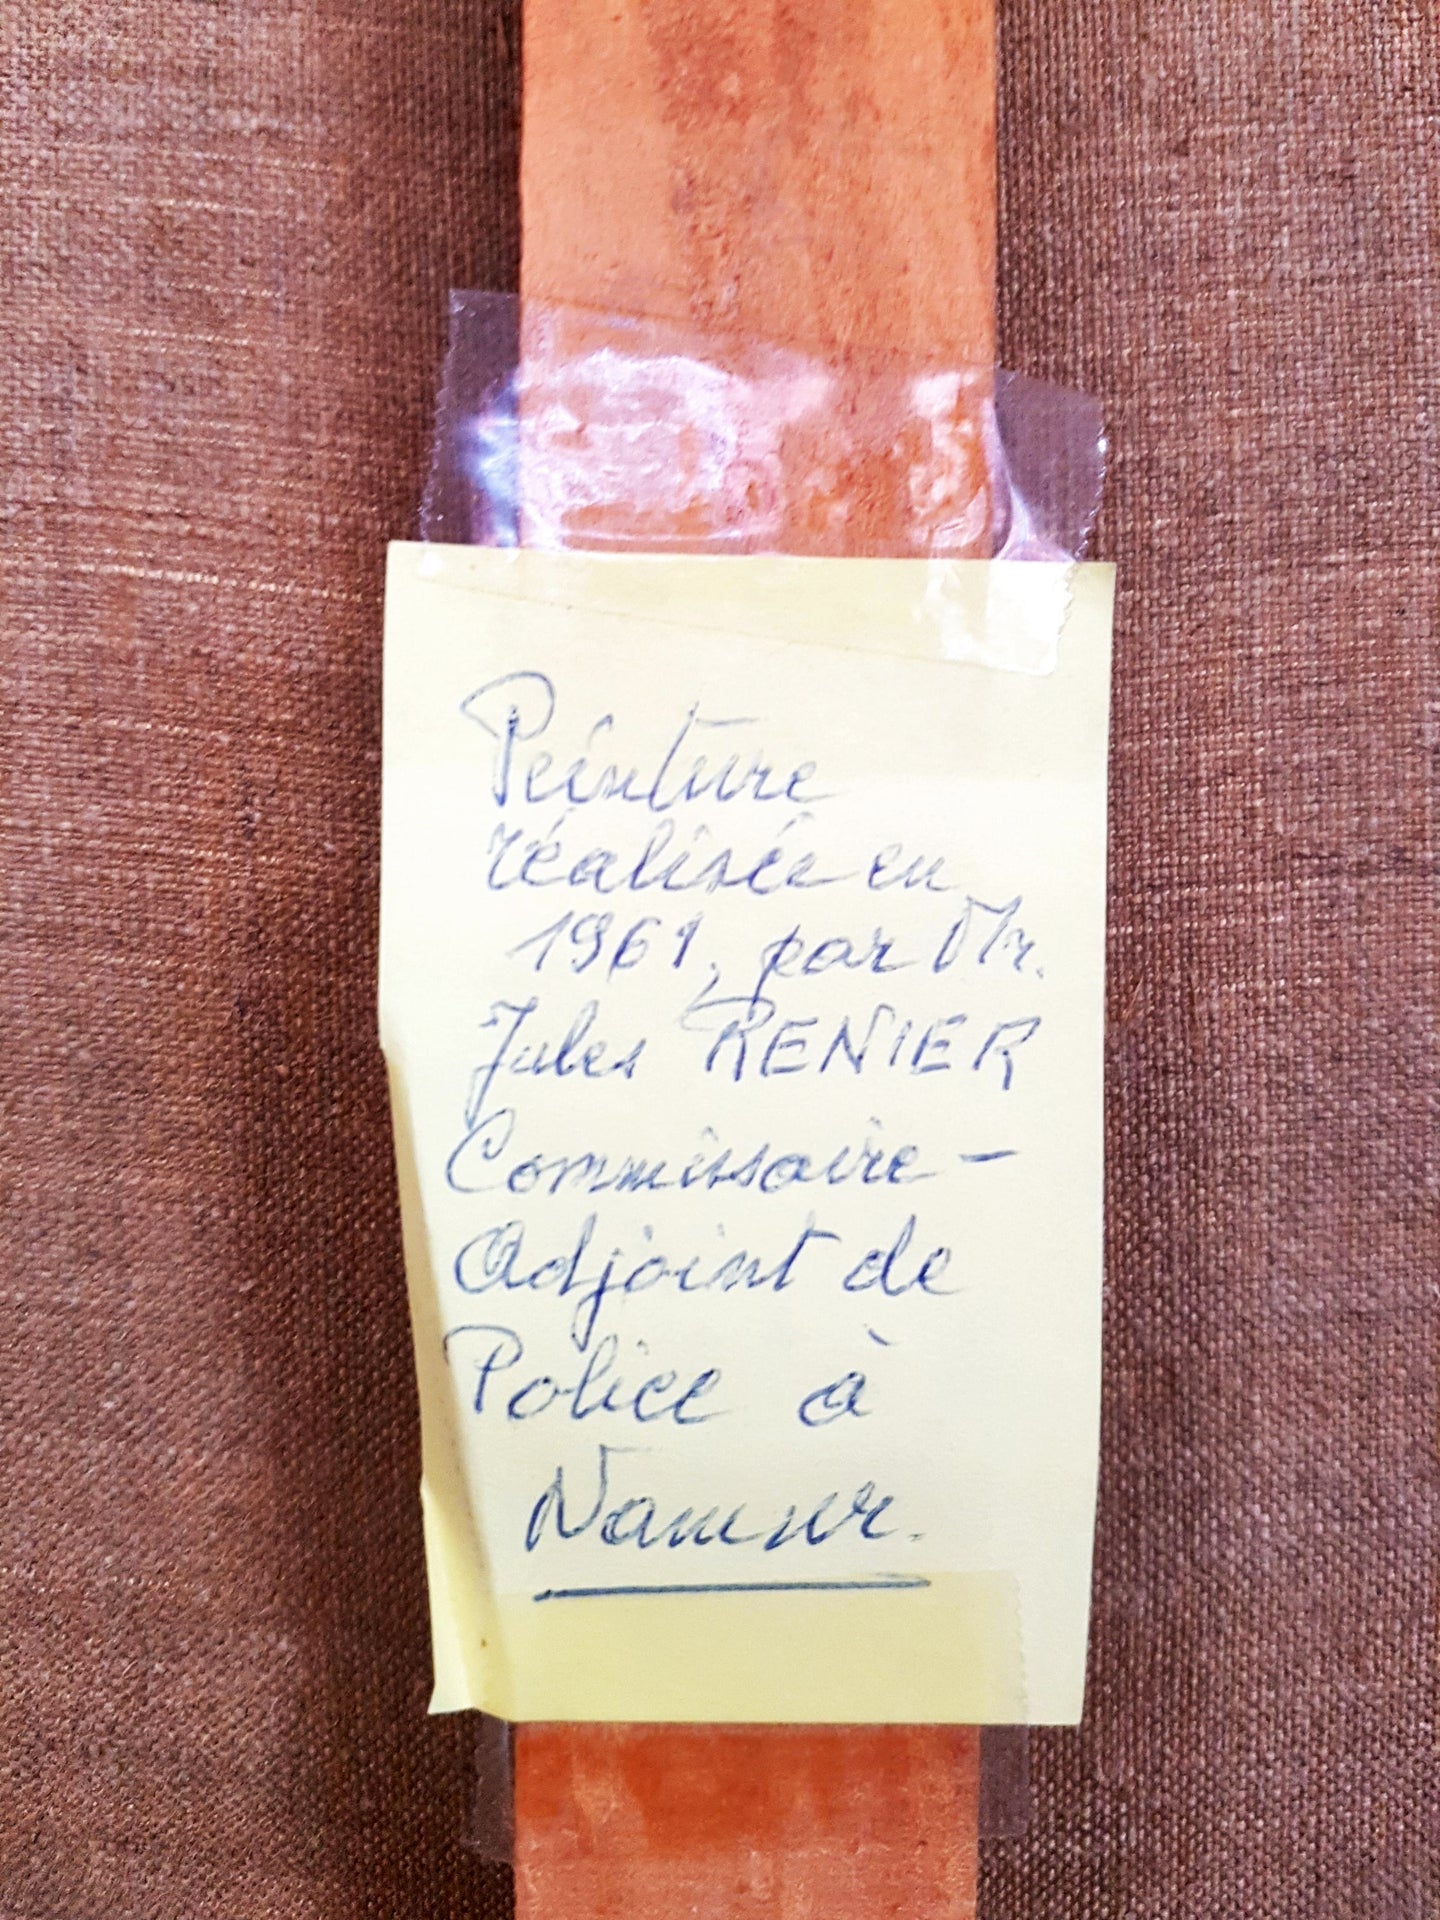 Peinture
réalisée en
1961, par Mr.
Jules RENIER
Commissaire-
Adjoint de
Police à
Namur.